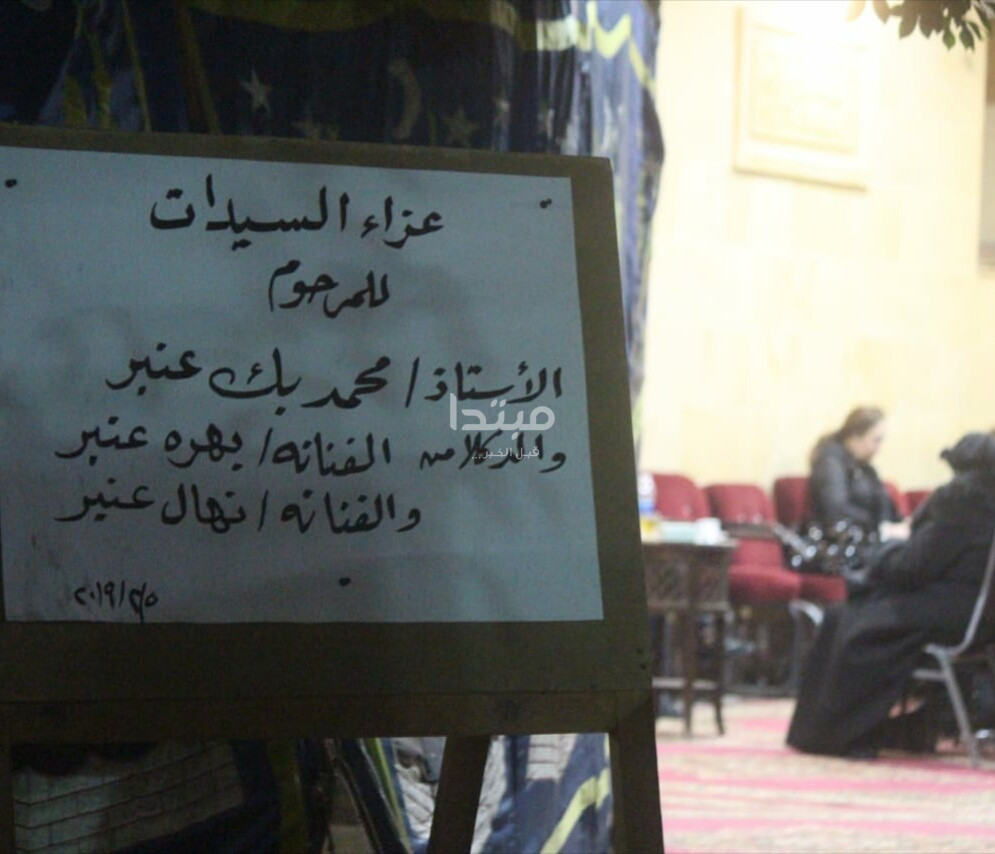 عزاء السيدات
للمرحوم
الأستاذ / محمد بك عنبر
والد كلا من الفنانه / بهره عنبر
والفنانه / نهال عنبر
مبتدا
قبل الخبر..